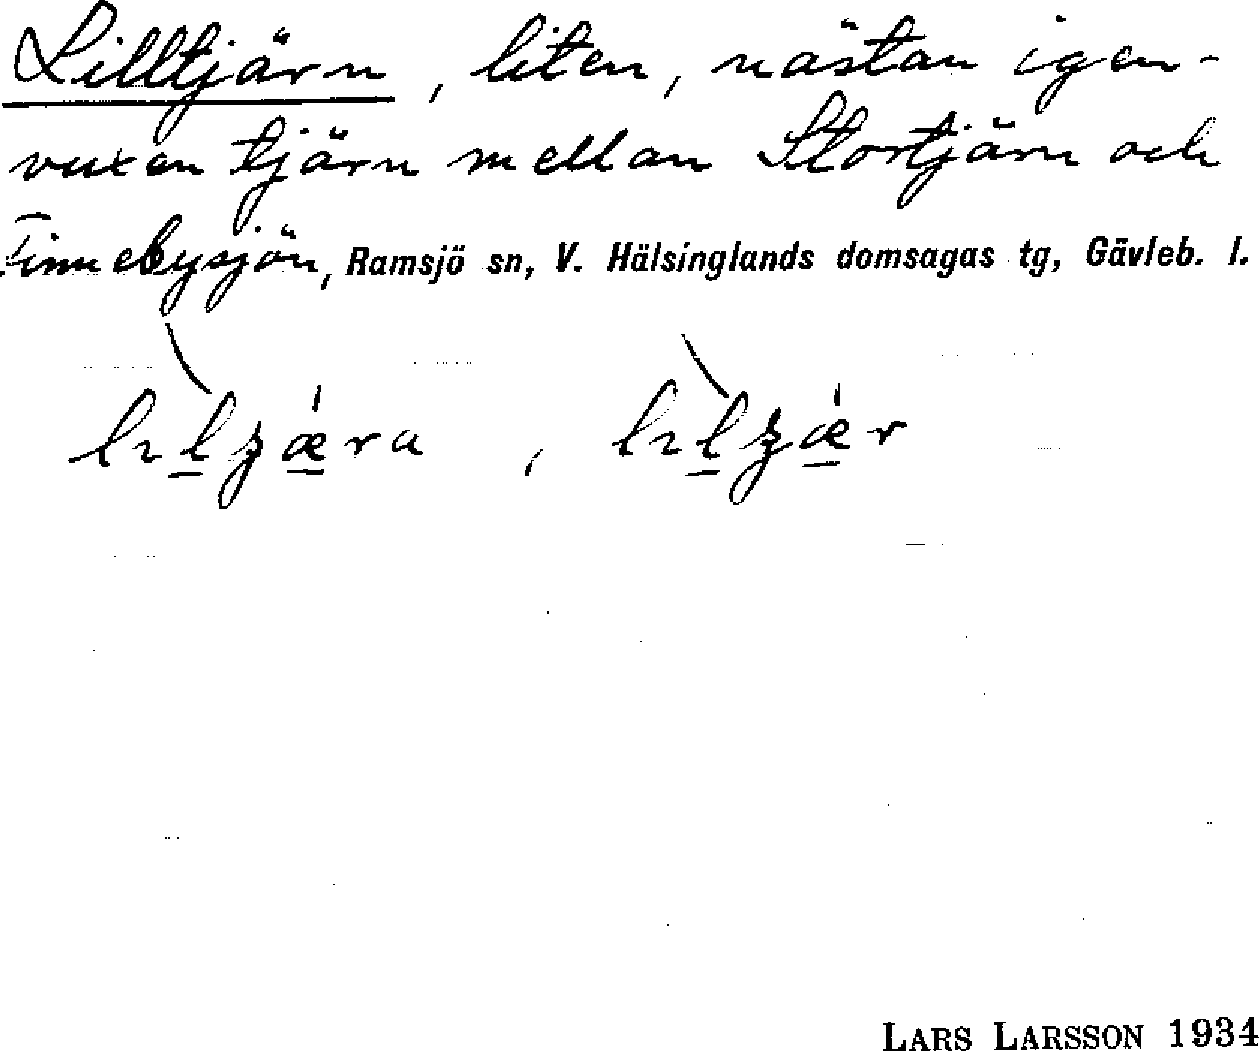 Lilltjärn, liten, nästan igen-
vuxen tjärn mellan Stortjärn och
Finnebysjön, Ramsjö sn, V. Hälsinglands domsagas tg, Gävleb. l.
LARS LARSSON 1934